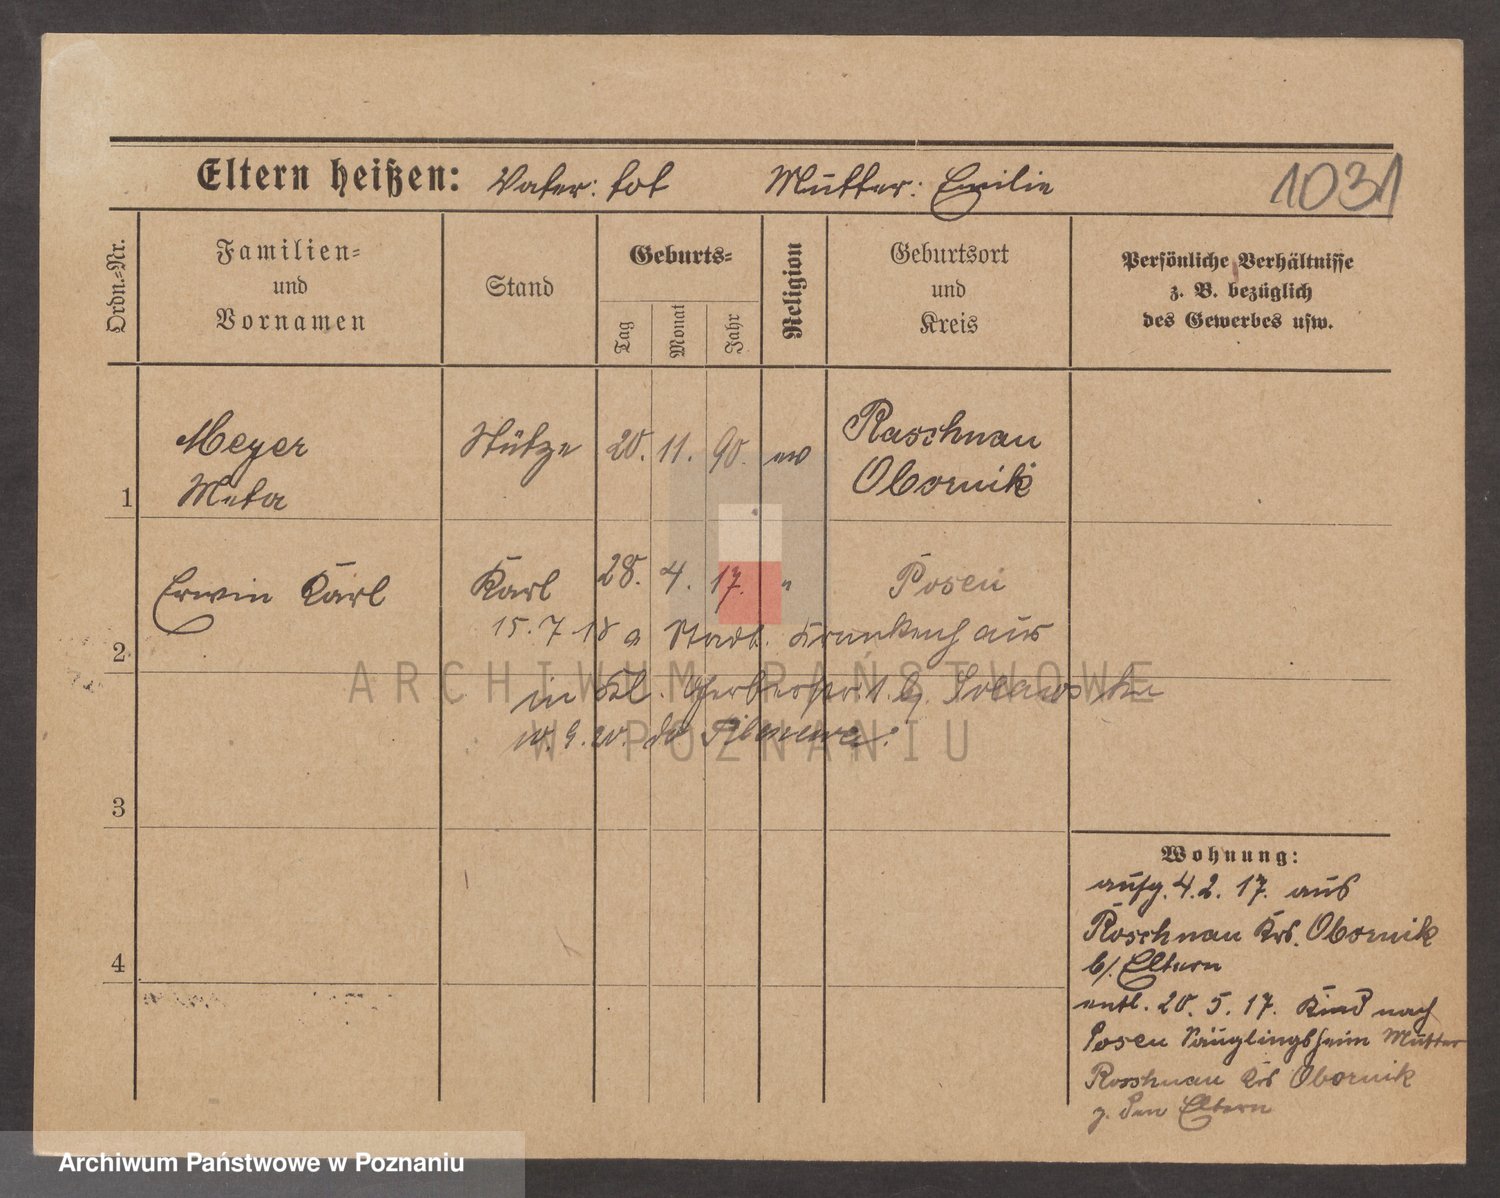 Eltern heißen: Vater: tot Mutter: Emilie 1031
Ordn.-Nr.
Familien-
und
Vornamen
Stand
Geburts-
Tag
Monat
Jahr
Religion
Geburtsort
und
Kreis
Persönliche Verhältnisse
z. B. bezüglich
des Gewerbes usw.
1 Meyer Stütze 20. 11. 90. ev Raschnau
Meta Obornik
2 Erwin Karl Karl 28. 4. 17. " Posen
15.7 18 a Stadt. Krankenh aus
in Kl. Gerberstr. 1. b/.
3
4
Wohnung:
aufg. 4.2. 17. aus
Roschnau Krs. Obornik
b/. Eltern
entl. 20. 5. 17. Kind nach
Posen Säuglingsheim Mutter
Roschnau Krs Obornik
z. den Eltern
ARCHIWUM PAŃSTWOWE
W POZNANIU
Archiwum Państwowe w Poznaniu